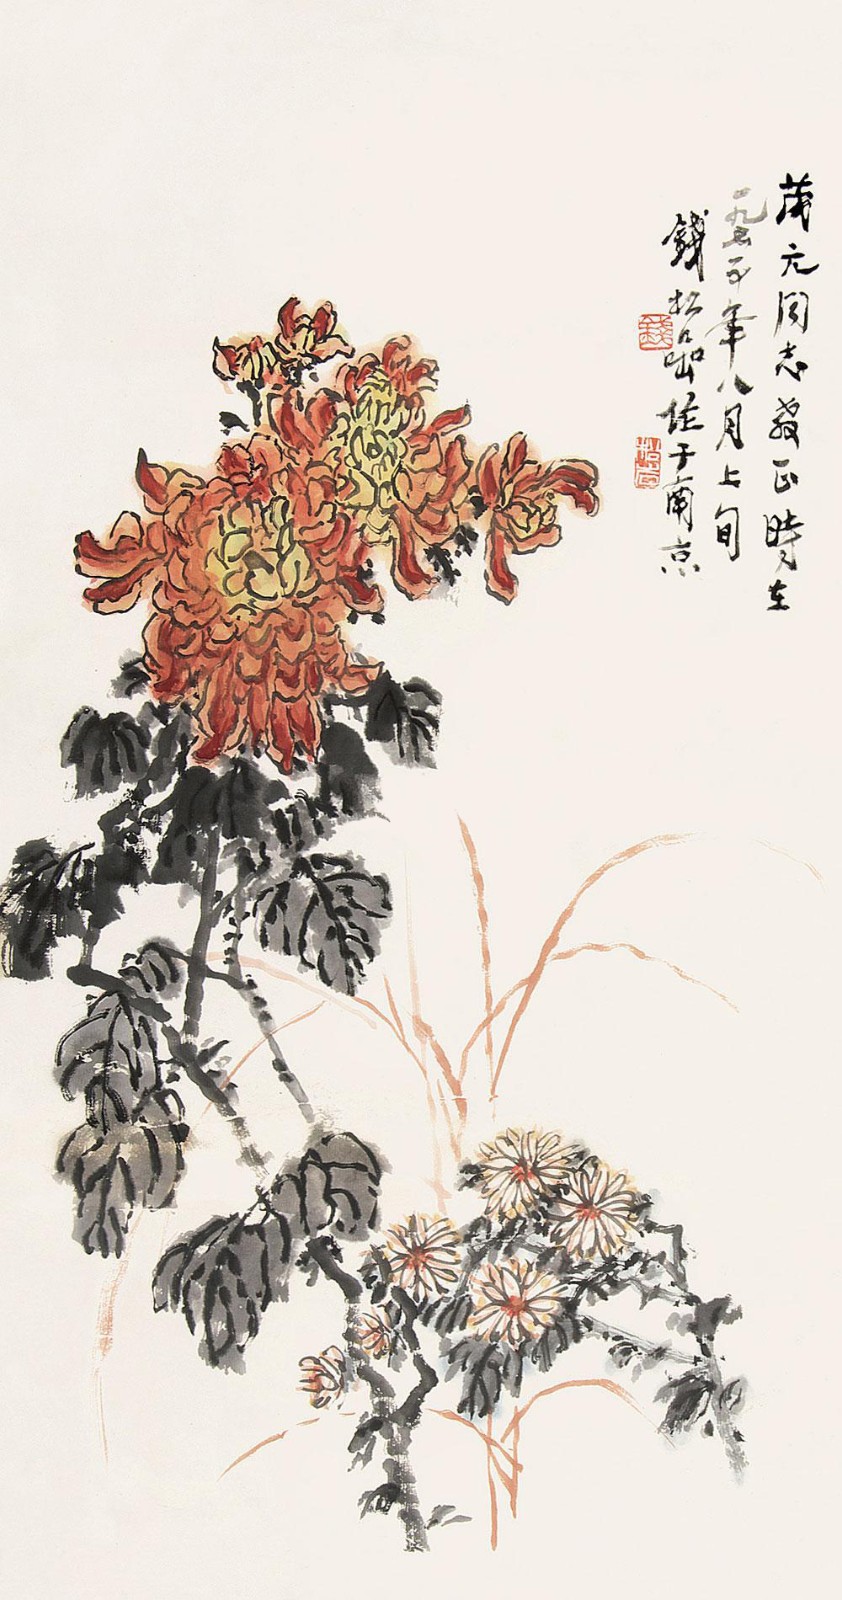 茂元同志教正時在
一九七五年八月上旬
錢松嵒作于南京
錢